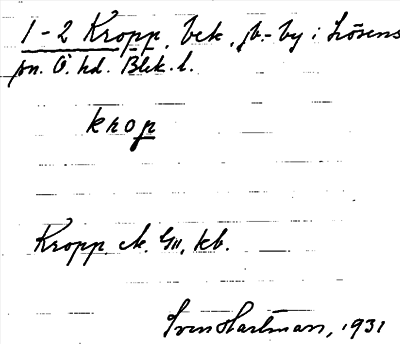 1-2 Kropp, bek. jb.-by i Lösens
sn. Ö. hd. Blek. l.
krop
Kropp. ek. Gu, kb.
Sven Hartman, 1931